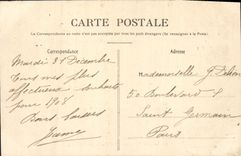 CARTE POSTALE
La Correspondance au recto n'est pas acceptée par tous les pays étrangers (Se renseigner à la Poste)
Correspondance
Adresse
Mardi 31 Décembre
Mademoiselle G.
Tous mes
50 Boulevard S
affectueux souhaits
pour 1908
Saint Germain
Bons baisers
Paris